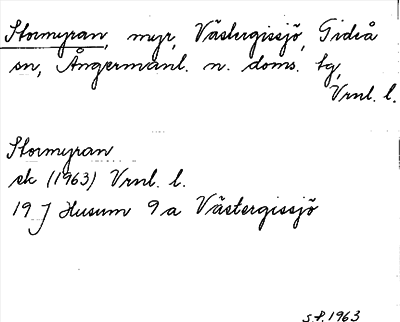 Stormyran, myr, Västergissjö, Gideå
sn, Ångermanl. n. doms. tg,
Vrnl. l.
Stormyran
ek (1963) Vrnl. l.
19 J Husum 9a Västergissjö
s.f. 1963